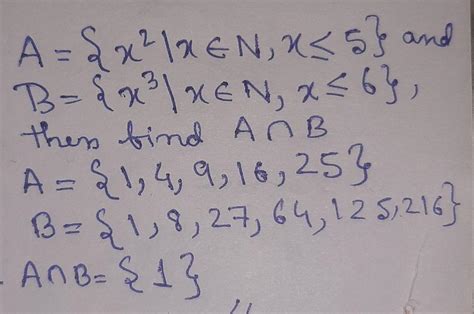 A = {x²|x∈N, x≤5} and
B = {x³|x∈N, x≤6},
then find A∩B
A = {1, 4, 9, 16, 25}
B = {1, 8, 27, 64, 125, 216}
A∩B = {1}